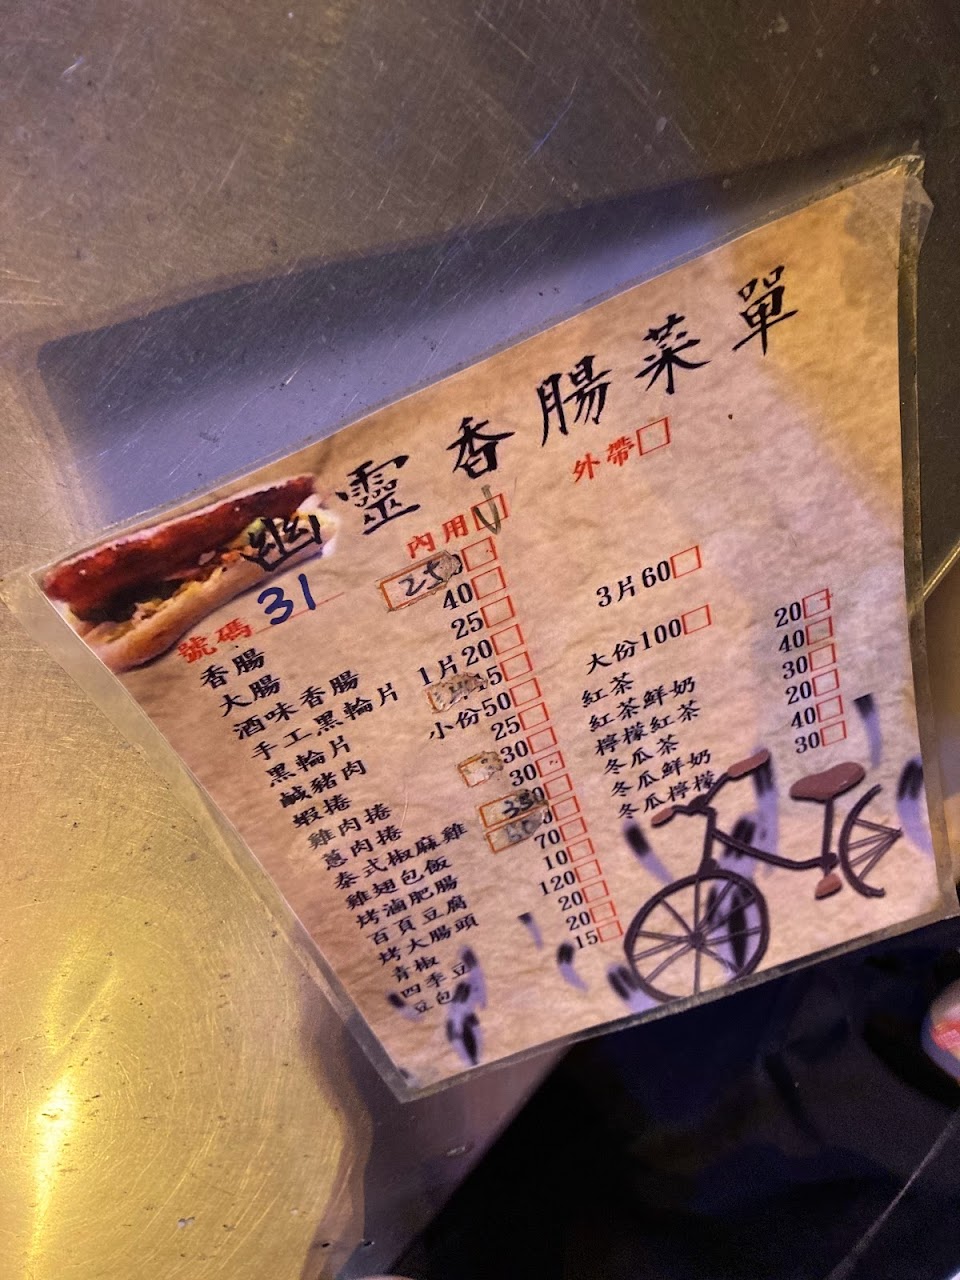 幽靈香腸菜單
號碼 31 內用 外帶
香腸 25
大腸 40
酒味香腸 25
手工黑輪片 1片20 3片60
黑輪片
鹹豬肉 小份50 大份100
蝦捲 25
雞肉捲 30
蔥肉捲 30
泰式椒麻雞
雞翅包飯
烤滷肥腸 70
百頁豆腐 10
烤大腸頭 120
青椒 20
四季豆 20
豆包 15
紅茶 20
紅茶鮮奶 40
檸檬紅茶 30
冬瓜茶 20
冬瓜鮮奶 40
冬瓜檸檬 30